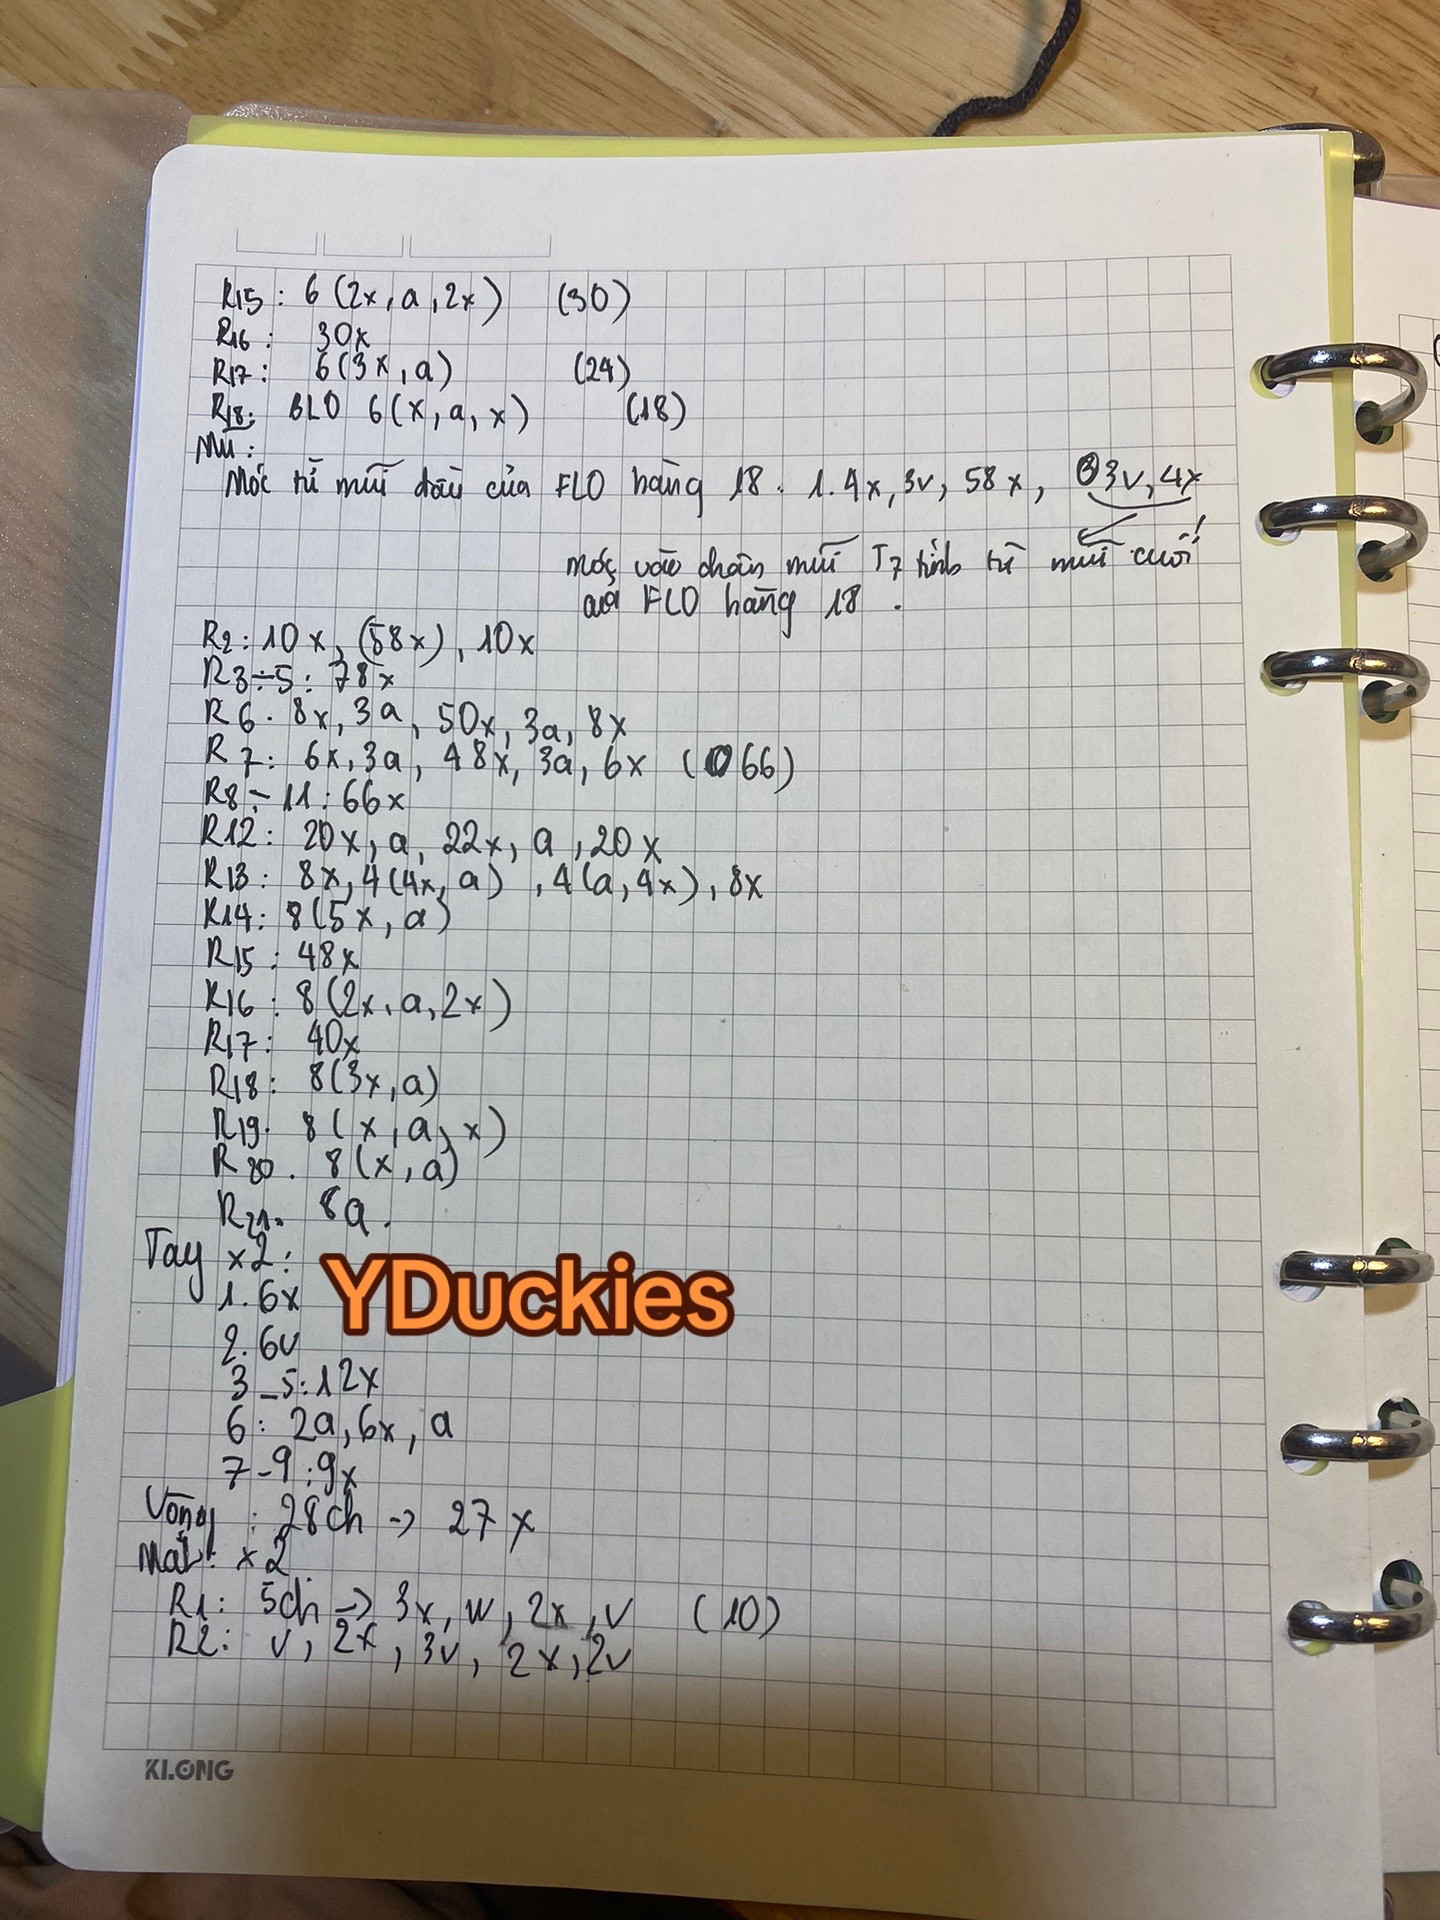 R15: 6 (2x, a, 2x) (30)
R16: 30x
R17: 6(3x, a) (24)
R18: BLO 6(x, a, x) (18)
Mũ:
Móc từ mũi đầu của FLO hàng 18. 1. 4x, 3v, 58x, 3v, 4x
móc vào chân mũi T7 tính từ mũi cuối
của FLO hàng 18.
R2: 10x, (58x), 10x
R3÷5: 78x
R6. 8x, 3a, 50x, 3a, 8x
R7: 6x, 3a, 48x, 3a, 6x (66)
R8÷11: 66x
R12: 20x, a, 22x, a, 20x
R13: 8x, 4(4x, a), 4(a, 4x), 8x
R14: 8(5x, a)
R15: 48x
R16: 8(2x, a, 2x)
R17: 40x
R18: 8(3x, a)
R19. 8(x, a, x)
R20. 8(x, a)
R21. 8a.
Tay x2:
YDuckies
1. 6x
2. 6v
3_5: 12x
6: 2a, 6x, a
7-9: 9x
Vòng: 28ch -> 27x
Mắt: x2
R1: 5ch -> 3x, w, 2x, v (10)
R2: v, 2x, 3v, 2x, 2v
KLONG